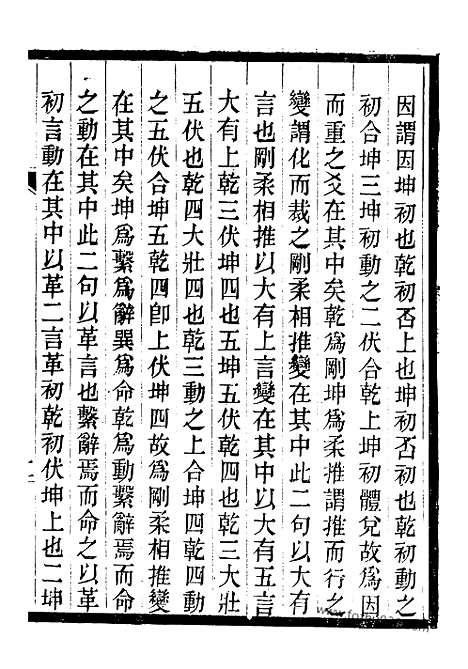 因謂因坤初也乾初否上也坤初否初也乾初動之
初合坤三坤初動之二伏合乾上坤初體兌故爲因
而重之爻在其中矣乾爲剛坤爲柔推謂推而行之
變謂化而裁之剛柔相推變在其中此二句以大有
言也剛柔相推以大有上言變在其中以大有五言
大有上乾三伏坤四也五坤五伏乾四也乾三大壯
五伏也乾四大壯四也乾三動之上合坤四乾四動
之五伏合坤五乾四卽上伏坤四故爲剛柔相推變
在其中矣坤爲繫爲辭巽爲命乾爲動繫辭焉而命
之動在其中此二句以革言也繫辭焉而命之以革
初言動在其中以革二言革初乾初伏坤上也二坤